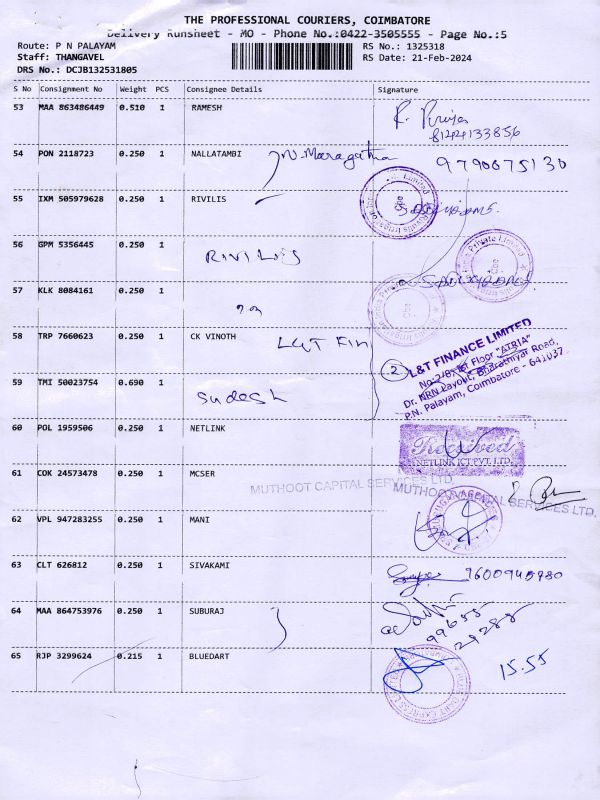 THE PROFESSIONAL COURIERS, COIMBATORE
Delivery Runsheet - MO - Phone No.:0422-3505555 - Page No.:5
Route: P N PALAYAM RS No.: 1325318
Staff: THANGAVEL RS Date: 21-Feb-2024
DRS No.: DCJB132531805
S No Consignment No Weight PCS Consignee Details Signature
53 MAA 863486449 0.510 1 RAMESH
R. Priya
8144133856
54 PON 2118723 0.250 1 NALLATAMBI N. Maragatha 9790075130
55 IXM 505979628 0.250 1 RIVILIS
56 GPM 5356445 0.250 1 RIVILIS
57 KLK 8084161 0.250 1
58 TRP 7660623 0.250 1 CK VINOTH L&T Fin
2 L&T FINANCE LIMITED
59 TMI 50023754 0.690 1 Sudesh
Dr. NRN Layout, Bharathiyar Road,
P.N. Palayam, Coimbatore - 641037
60 POL 1959506 0.250 1 NETLINK
Received
NETLINK ICT PVT. LTD.
61 COK 24573478 0.250 1 MCSER
MUTHOOT CAPITAL SERVICES LTD. MUTHOOT CAPITAL SERVICES LTD.
62 VPL 947283255 0.250 1 MANI
63 CLT 626812 0.250 1 SIVAKAMI 9600945980
64 MAA 864753976 0.250 1 SUBURAJ
99655
29288
65 RJP 3299624 0.215 1 BLUEDART 15.55